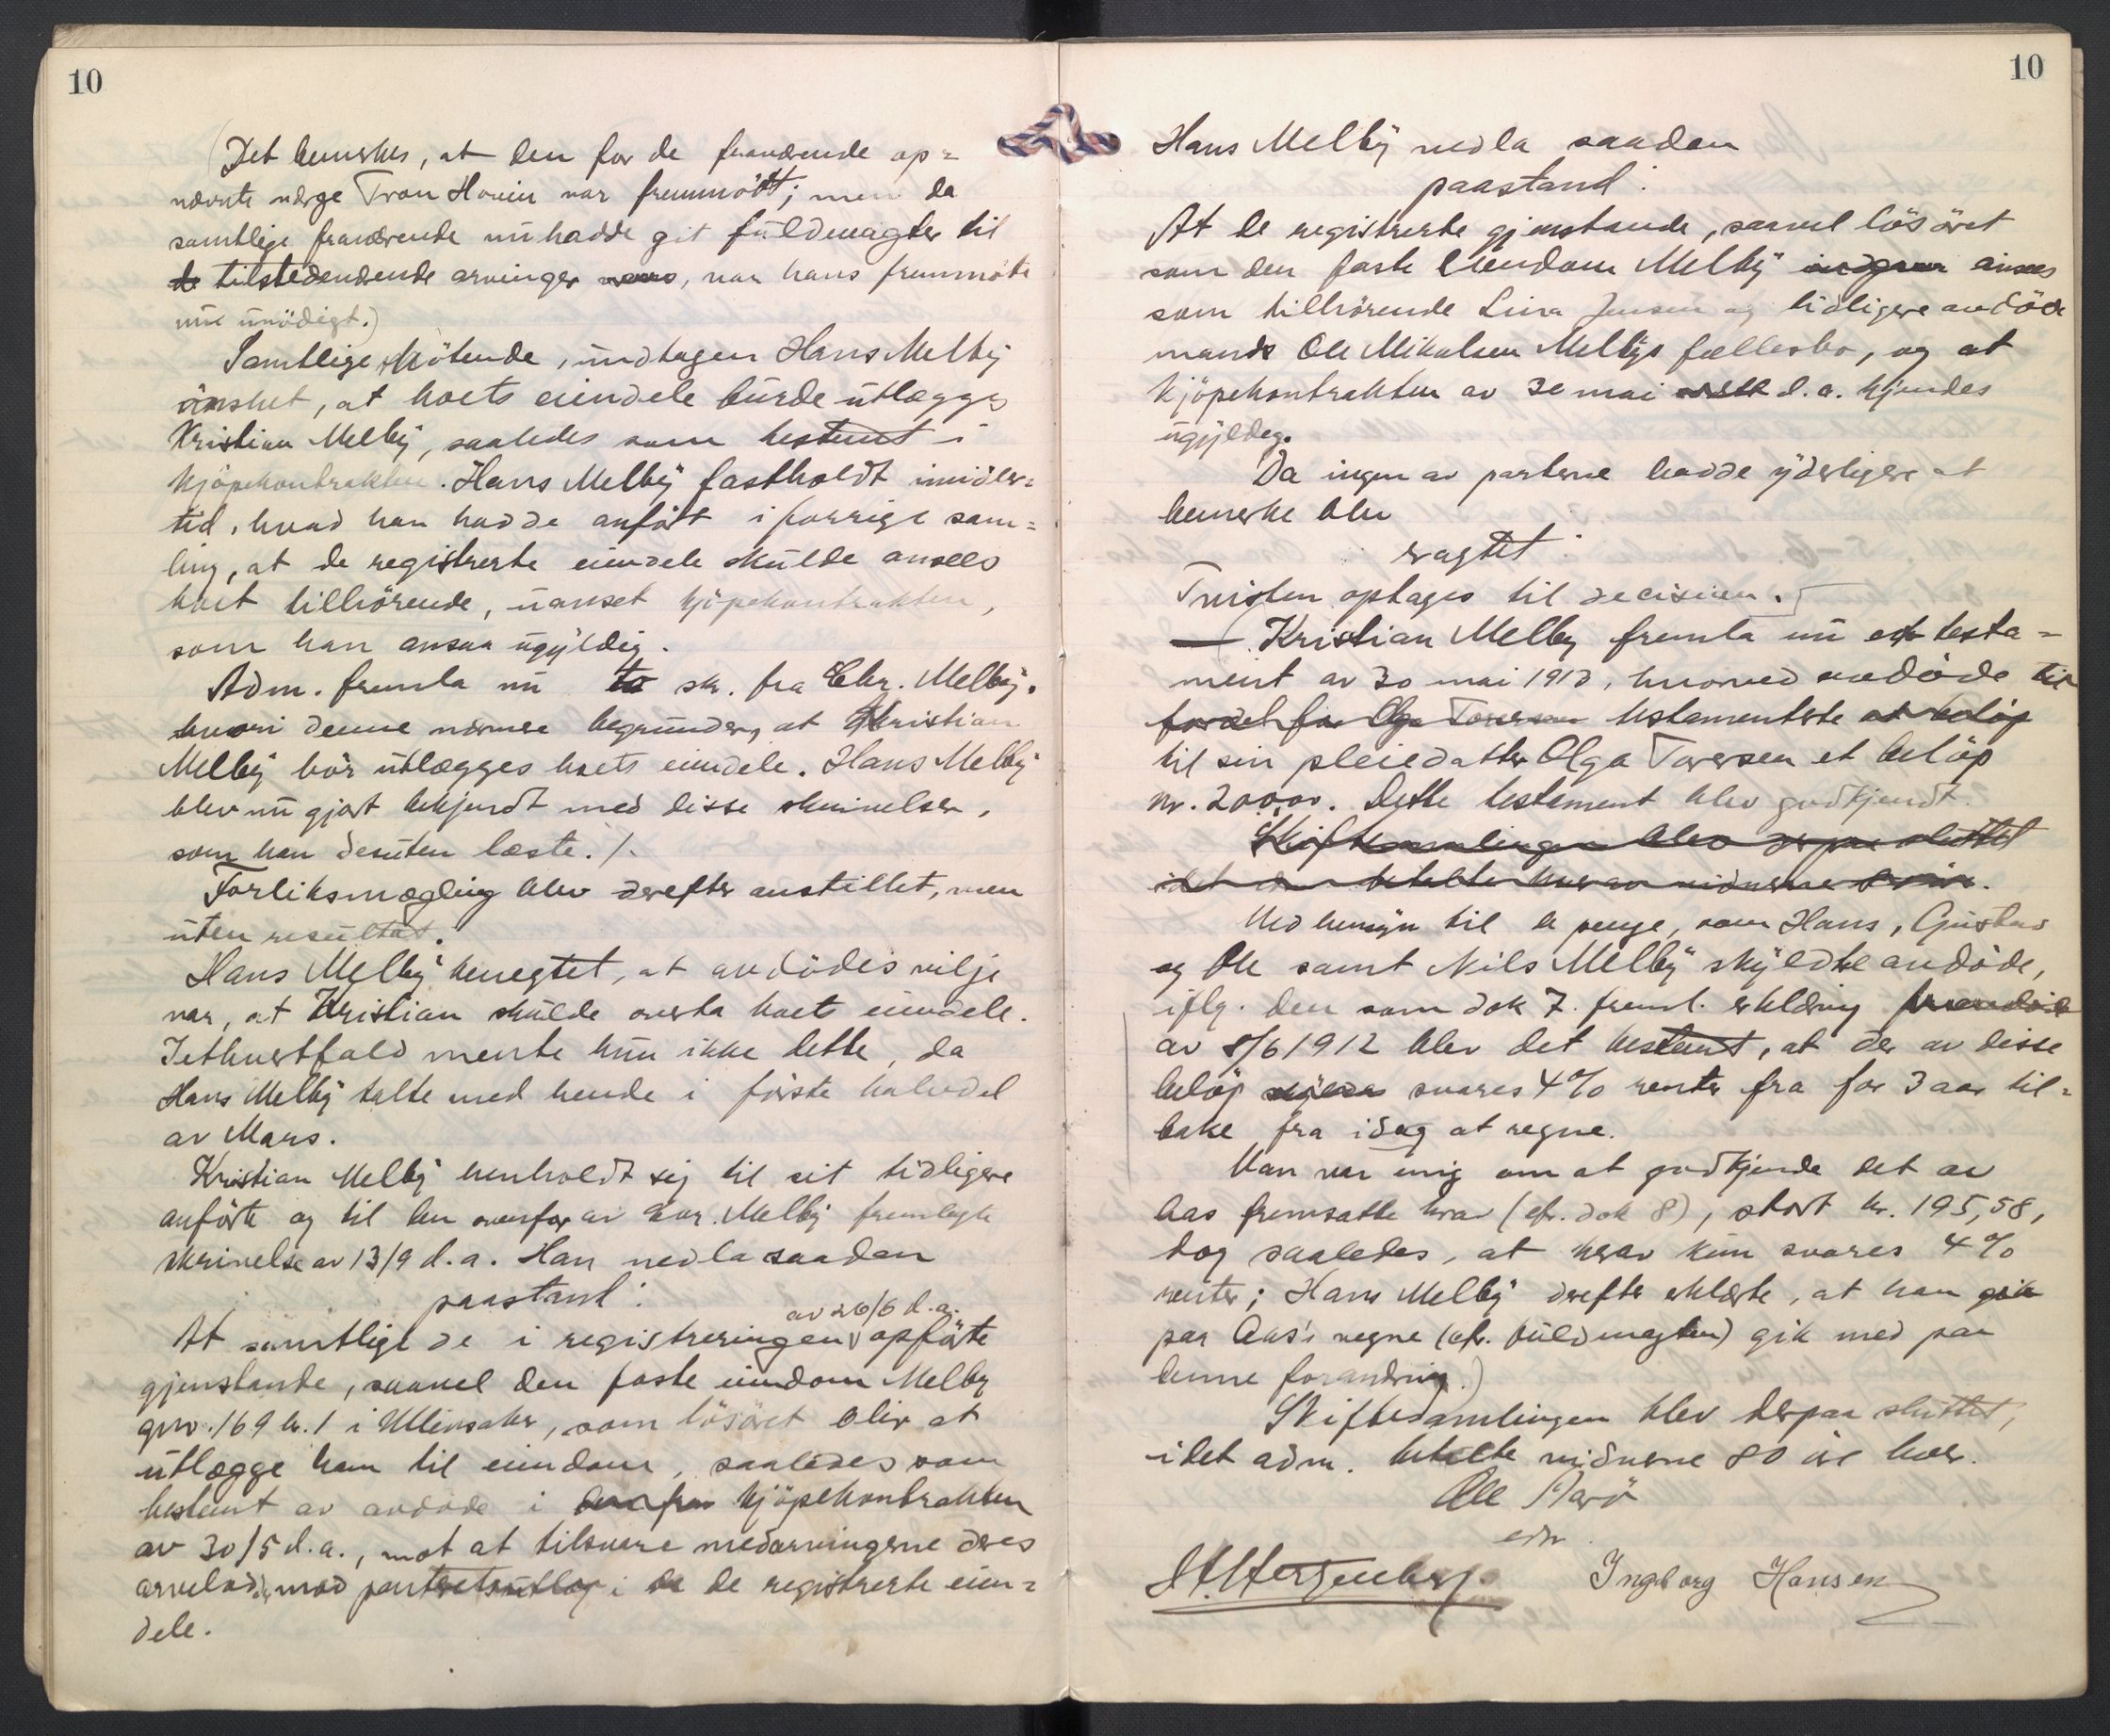 10
(Det bemerkes, at den for de fraværende op=
nævnte værge Tron Hovin var fremmött; men da
samtlige fraværende nu hadde git fuldmagter til
de tilstedeværende arvinger, var hans fremmöte
nu unödigt.)
Samtlige mötende, undtagen Hans Melby
önsket, at boets eiendele burde utlægges
Kristian Melby, saaledes som bestemt i
kjöpekontrakten. Hans Melby fastholdt imidler=
tid, hvad han hadde anfört i forrige sam=
ling, at de registrerte eiendele skulde ansees
boet tilhörende, uanset kjöpekontrakten,
som han ansaa ugyldig.
Adm. fremla nu to skr. fra Chr. Melby,
hvori denne nærmere begrunder, at Kristian
Melby bör utlægges boets eiendele. Hans Melby
blev nu gjort bekjendt med disse skrivelser,
som han desuten læste. /.
Forliksmægling blev derefter anstillet, men
uten resultat.
Hans Melby benegtet, at avdödes vilje
var, at Kristian skulde overta boets eiendele.
Iethvertfald mente hun ikke dette, da
Hans Melby talte med hende i förste halvdel
av Mars.
Kristian Melby henholdt sig til sit tidligere
anförte og til den ovenfor av Chr. Melby fremlagte
skrivelse av 13/9 d.a. Han nedla saadan
paastand:
av 26/6 d.a.
At samtlige de i registreringen opförte
gjenstande, saavel den faste eiendom Melby
gno. 169 br. 1 i Ullensaker, som lösöret blir at
utlægge ham til eiendom, saaledes som
bestemt av avdöde i kjöpekontrakten
av 30/5 d.a., mot at tilsvare medarvingerne deres
arvelod, mod panteretsutlæg i de registrerte eien=
dele.
10
Hans Melby nedla saadan
paastand:
At de registrerte gjenstande, saavel lösöret
som den faste Eiendom Melby ansees
som tilhörende Lina Jensen og tidligere avdöde
mands Ole Mikalsen Melbys fællesbo, og at
kjöpekontrakten av 30 mai d.a. kjendes
ugyldig.
Da ingen av parterne hadde yderligere at
bemerke blev
eragtet:
Tvisten optages til decision.
(Kristian Melby fremla nu et testa=
ment av 30 mai 1913, hvorved avdöde til
fordel for Olga Toresen testamenterte et belöp
til sin pleiedatter Olga Toresen et belöp
kr. 200,00. Dette testament blev godkjendt.
Skiftesamlingen blev derpaa sluttet
idet betalte hver av vidnerne
Med hensyn til de penge, som Hans, Gustav
og Ole samt Nils Melby skyldte avdöde,
iflg. den som dok 7. freml. erklæring
av 8/6 1912 blev det bestemt, at der av disse
belöp svares 4% renter fra for 3 aar til=
bake fra idag at regne.
Man var enig om at godkjende det av
Aas fremsatte krav (cfr. dok 8), stort kr. 195,58,
dog saaledes, at herav kun svares 4%
renter; Hans Melby derefter erklærte, at han gik
paa Aas's vegne (cfr. fuldmagten) gik med paa
denne forandring.)
Skiftesamlingen blev derpaa sluttet,
idet adm. betalte vidnerne 80 öre hver.
Ole Marö
edr.
Ingeborg Hansen